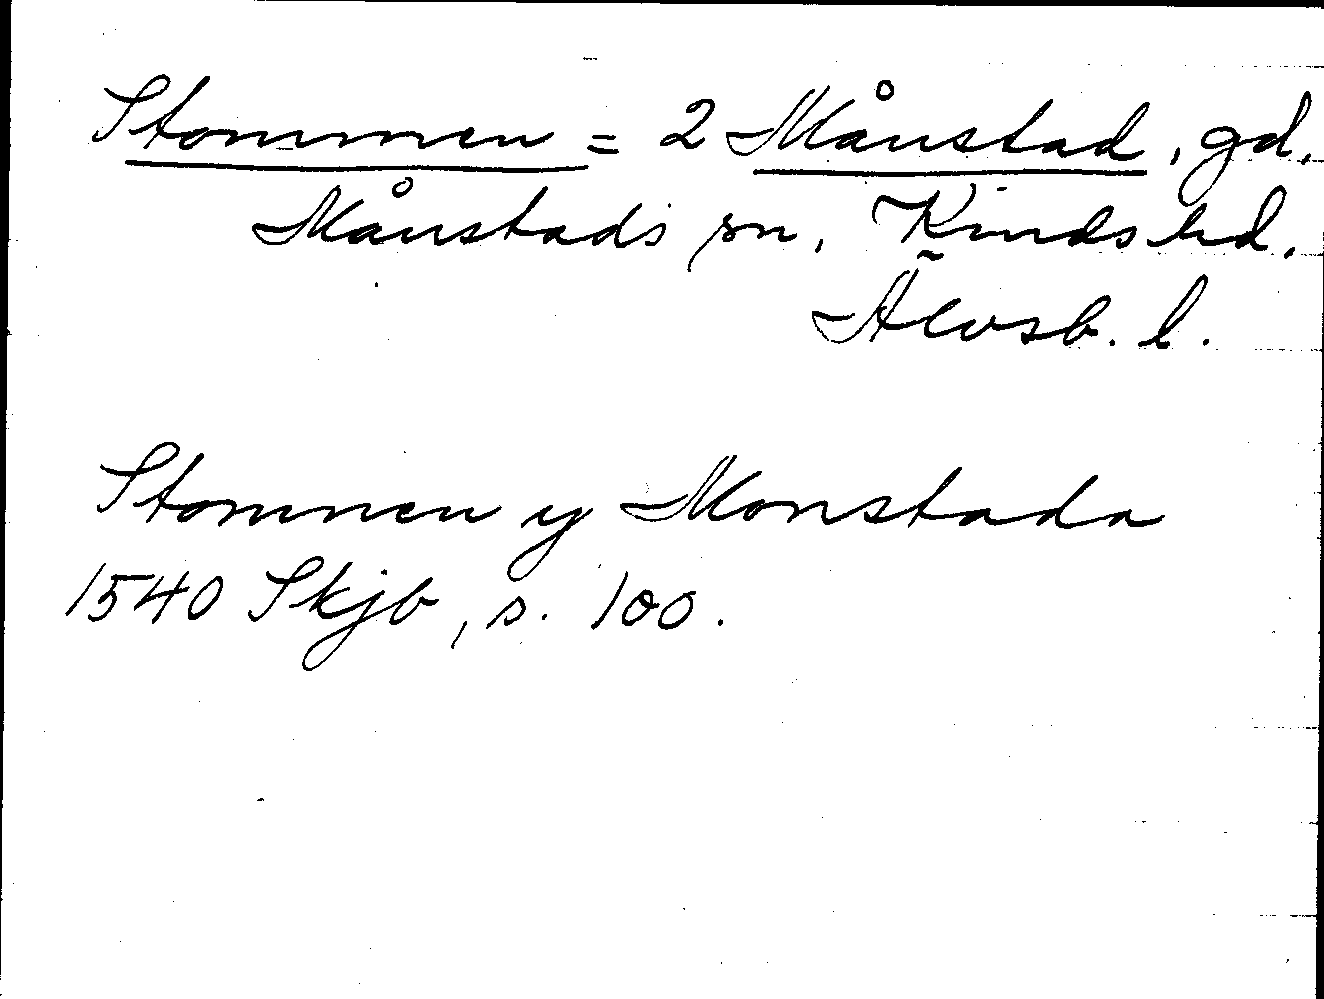 Stommen = 2 Månstad, gd,
Månstads sn, Kinds hd.
Älvsb. l.
Stommen y Monstada
1540 Skjb, s. 100.